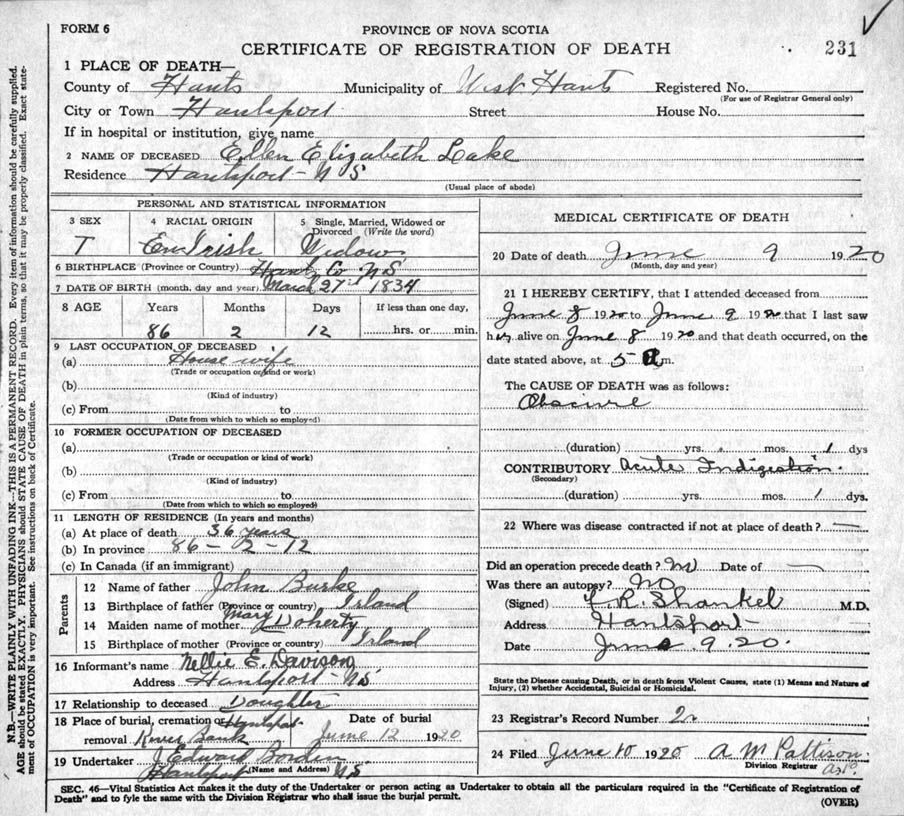 FORM 6
PROVINCE OF NOVA SCOTIA
CERTIFICATE OF REGISTRATION OF DEATH
231
1 PLACE OF DEATH—
County of Hants Municipality of West Hants Registered No.
(For use of Registrar General only)
City or Town Hantsport Street House No.
If in hospital or institution, give name
2 NAME OF DECEASED Ellen Elizabeth Lake
Residence Hantsport - N S
(Usual place of abode)
PERSONAL AND STATISTICAL INFORMATION
3 SEX
4 RACIAL ORIGIN
5 Single, Married, Widowed or Divorced (Write the word)
Irish Widow
6 BIRTHPLACE (Province or Country) Hants Co NS
7 DATE OF BIRTH (month, day and year) March 27 1834
8 AGE Years Months Days If less than one day,
86 2 12 hrs. or min.
9 LAST OCCUPATION OF DECEASED
(a) House wife
(Trade or occupation or kind or work)
(b)
(Kind of industry)
(c) From to
(Date from which to which so employed)
10 FORMER OCCUPATION OF DECEASED
(a)
(Trade or occupation or kind of work)
(b)
(Kind of industry)
(c) From to
(Date from which to which so employed)
11 LENGTH OF RESIDENCE (In years and months)
(a) At place of death 36 years
(b) In province 86 - 2 - 12
(c) In Canada (if an immigrant)
Parents
12 Name of father John Burke
13 Birthplace of father (Province or country) Irland
14 Maiden name of mother Mary Doherty
15 Birthplace of mother (Province or country) Irland
16 Informant's name Nellie E. Davison
Address Hantsport - NS
17 Relationship to deceased Doughter
18 Place of burial, cremation or Hantsport
removal River Bank
Date of burial
June 12 1920
19 Undertaker J. Edward Borden
Hantsport (Name and Address) NS
MEDICAL CERTIFICATE OF DEATH
20 Date of death June 9 1920
(Month, day and year)
21 I HEREBY CERTIFY, that I attended deceased from
June 8 1920 to June 9 1920 that I last saw
her alive on June 8 1920 and that death occurred, on the
date stated above, at 5 a m.
The CAUSE OF DEATH was as follows:
Obscure
(duration) yrs. mos. 1 dys
CONTRIBUTORY Acute Indigestion.
(Secondary)
(duration) yrs. mos. 1 dys.
22 Where was disease contracted if not at place of death? —
Did an operation precede death? No Date of —
Was there an autopsy? No
(Signed) R. Shankel M.D.
Address Hantsport
Date June 9. 20.
State the Disease causing Death, or in death from Violent Causes, state (1) Means and Nature of
Injury, (2) whether Accidental, Suicidal or Homicidal.
23 Registrar's Record Number
24 Filed June 10 1920 A M Pattison
Division Registrar
SEC. 46—Vital Statistics Act makes it the duty of the Undertaker or person acting as Undertaker to obtain all the particulars required in the "Certificate of Registration of
Death" and to fyle the same with the Division Registrar who shall issue the burial permit.
(OVER)
N.B.—WRITE PLAINLY WITH UNFADING INK—THIS IS A PERMANENT RECORD. Every item of information should be carefully supplied.
AGE should be stated EXACTLY. PHYSICIANS should STATE CAUSE OF DEATH in plain terms, so that it may be properly classified. Exact state-
ment of OCCUPATION is very important. See instructions on back of Certificate.